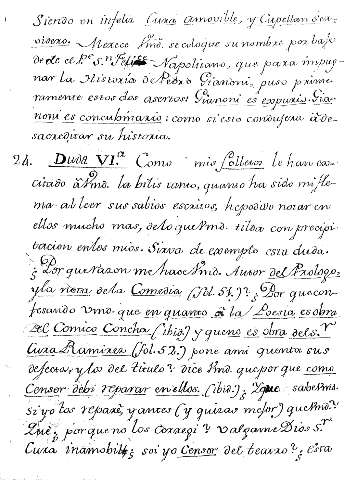 Siendo un infeliz Cura amovible, y Capellan Cas-
trense. Merece Vmd. se coloque su nombre por bajo
de el P.e S.n Felis Napolitano, que para impug-
nar la Historia de Pedro Gianoni, puso prime-
ramente estos dos asertos: Gianoni es espurio. Gia-
noni es concubinario: como si esto condujera à de-
sacreditar su historia.
24. Duda VI.a Como mis folletos le han exci-
citado à Vmd. la bilis tanto, quanto ha sido mi fle-
ma al leer sus sabios escritos, he podido notar en
ellos mucho mas, de lo que Vmd. tilda con precipi-
tacion en los mios. Sirva de exemplo esta duda.
¿Por que razon me hace Vmd. Autor del Prologo,
y la nota de la Comedia (fol. 51.)? ¿Por que con-
fesando Vmd. que en quanto à la Poesia es obra
del Comico Concha (ibid.) y que no es obra del S.r
Cura Ramirez (fol. 52.) pone à mi quenta sus
defectos, y los del titulo? dice Vmd. que por que como
Censor debi reparar en ellos. (ibid.) ¿Y que sabe Vmd.
si yo los reparè, y antes (y quizas mejor) que Vmd.?
¿Y que por que no los corregi? valgame Dios S.r
Cura inamobil; ¿soi yo Censor del teatro? ¿Esta